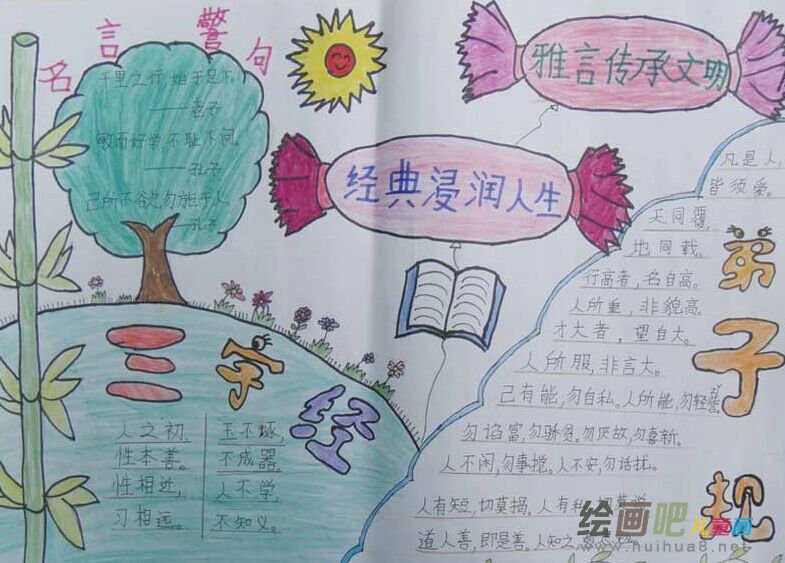 名言警句
千里之行,始于足下。
——老子
敏而好学,不耻下问。
——孔子
己所不欲,勿施于人。
——孔子
雅言传承文明
经典浸润人生
三字经
人之初,
性本善。
性相近,
习相远。
玉不琢,
不成器。
人不学,
不知义。
弟子规
凡是人,
皆须爱。
天同覆,
地同载。
行高者,名自高。
人所重,非貌高。
才大者,望自大。
人所服,非言大。
己有能,勿自私。人所能,勿轻訾。
勿谄富,勿骄贫。勿厌故,勿喜新。
人不闲,勿事搅。人不安,勿话扰。
人有短,切莫揭,人有私,切莫说。
道人善,即是善。人知之,
绘画吧 儿童画
www.huihua8.net